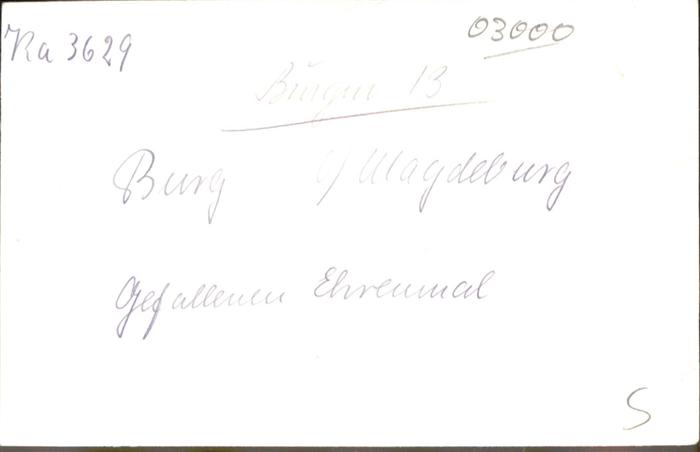 Ka 3629
03000
13
Burg b/ Magdeburg
Gefallenen Ehrenmal
S